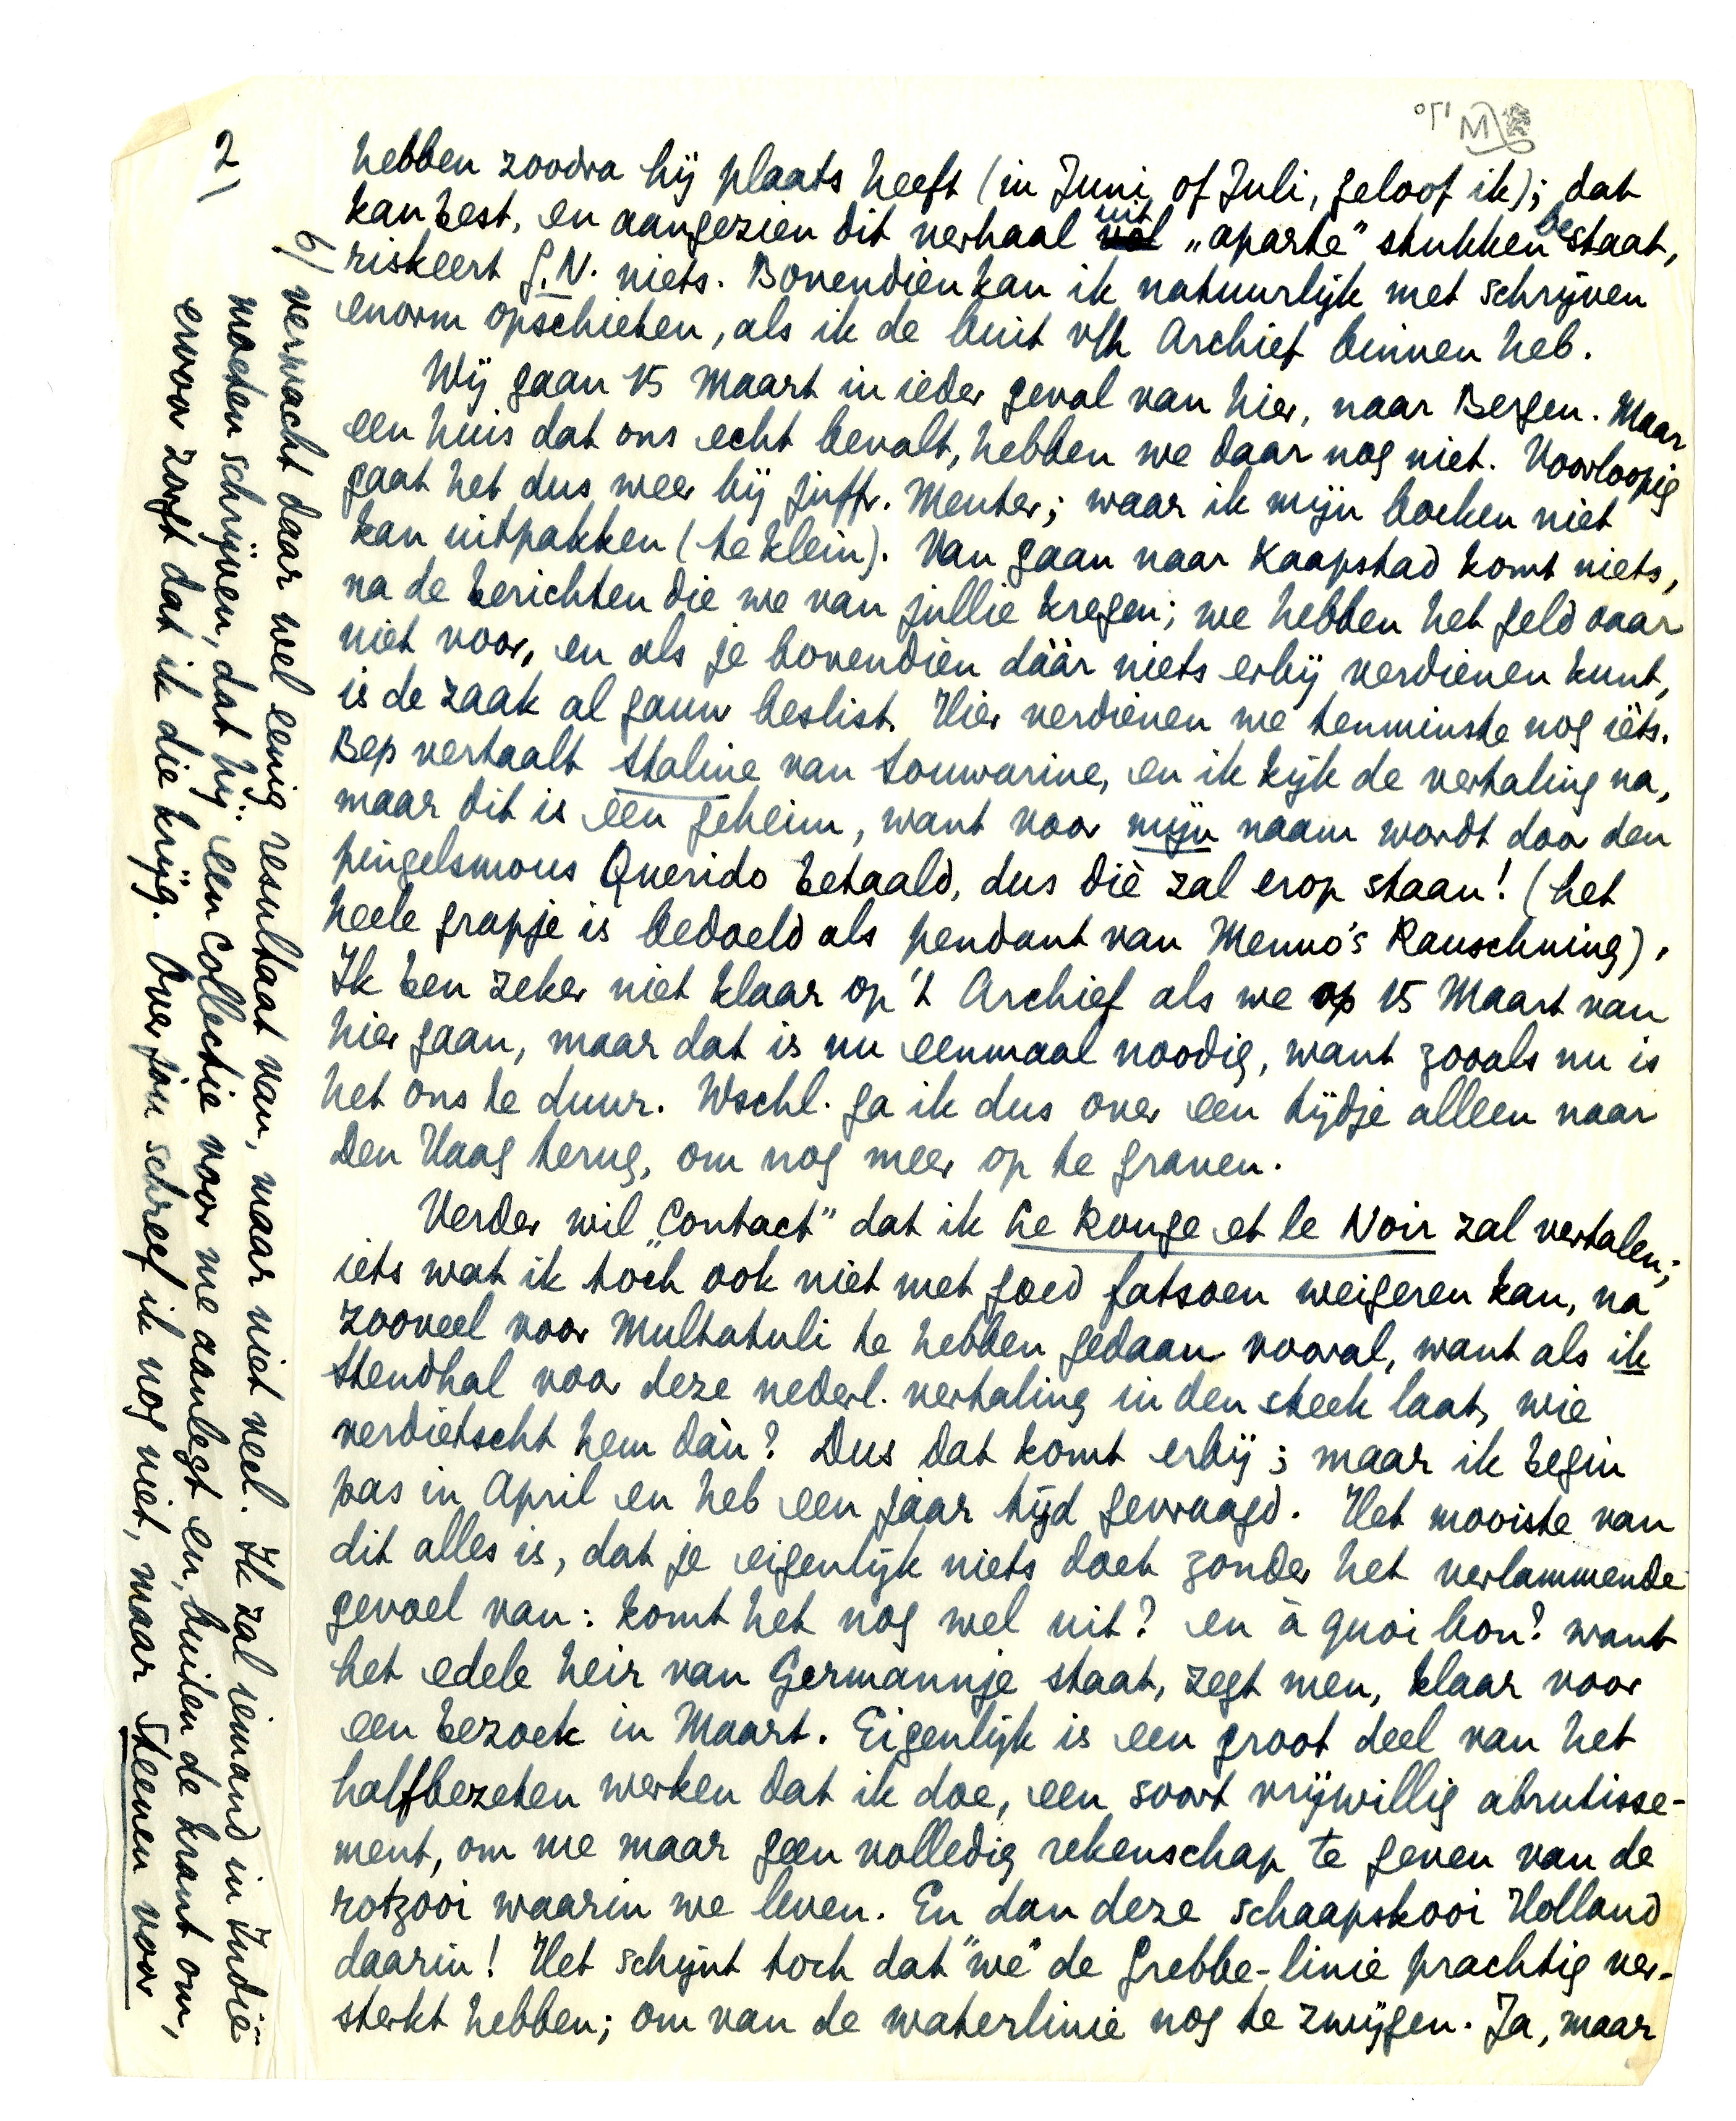 2)
hebben zoodra hij plaats heeft (in Juni of Juli, geloof ik); dat
kan best, en aangezien dit verhaal uit „aparte” stukken bestaat,
riskeert G.N. niets. Bovendien kan ik natuurlijk met schrijven
enorm opschieten, als ik de buit v/h Archief binnen heb.
Wij gaan 15 Maart in ieder geval van hier, naar Bergen. Maar
een huis dat ons echt bevalt, hebben we daar nog niet. Voorloopig
gaat het dus weer bij juffr. Menter; waar ik mijn boeken niet
kan uitpakken (te klein). Van gaan naar Kaapstad komt niets,
na de berichten die we van jullie kregen; we hebben het geld daar
niet voor, en als je bovendien dáár niets erbij verdienen kunt,
is de zaak al gauw beslist. Hier verdienen we tenminste nog iets.
Bep vertaalt Staline van Souvarine, en ik kijk de vertaling na,
maar dit is een geheim, want voor mijn naam wordt door den
pingelsmous Querido betaald, dus dié zal erop staan! (het
heele grapje is bedoeld als pendant van Menno's Rauschning).
Ik ben zeker niet klaar op 't Archief als we op 15 Maart van
hier gaan, maar dat is nu eenmaal noodig, want zooals nu is
het ons te duur. Wschl. ga ik dus over een tijdje alleen naar
Den Haag terug, om nog meer op te graven.
Verder wil „Contact” dat ik Le Rouge et le Noir zal vertalen;
iets wat ik toch ook niet met goed fatsoen weigeren kan, na
zooveel voor Multatuli te hebben gedaan vooral, want als ik
Stendhal voor deze nederl. vertaling in den steek laat, wie
verdietscht hem dàn? Dus dat komt erbij; maar ik begin
pas in April en heb een jaar tijd gevraagd. Het mooiste van
dit alles is, dat je eigenlijk niets doet zonder het verlammende
gevoel van: komt het nog wel uit? en à quoi bon? want
het edele heir van Germannje staat, zegt men, klaar voor
een bezoek in Maart. Eigenlijk is een groot deel van het
halfbezeten werken dat ik doe, een soort vrijwillig abrutisse-
ment, om me maar geen volledig rekenschap te geven van de
rotzooi waarin we leven. En dan deze schaapskooi Holland
daarin! Het schijnt toch dat “we” de Grebbe-linie prachtig ver-
sterkt hebben; om van de waterlinie nog te zwijgen. Ja, maar
6) verwacht daar wel eenig resultaat van, maar niet veel. Ik zal iemand in Indië
moeten schrijven, dat hij een collectie voor me aanlegt en, buiten de krant om,
ervoor zorgt dat ik die krijg. Over jou schreef ik nog niet, maar Steenen voor